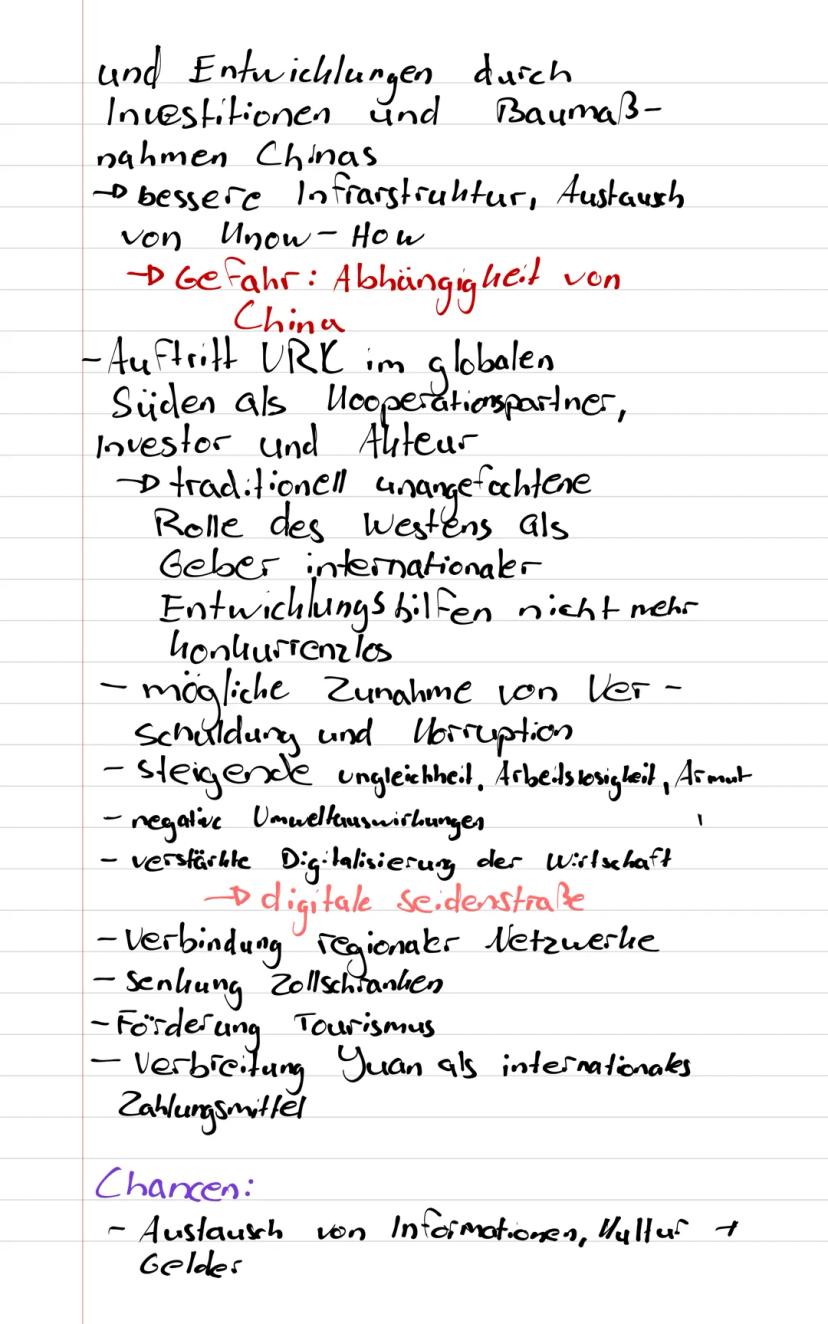 und Entwicklungen durch
Investitionen und Baumaß-
nahmen Chinas
→ bessere Infrarstruktur, Austausch
von Know-How
→ Gefahr: Abhängigkeit von
China
- Auftritt VRC im globalen
Süden als Kooperationspartner,
Investor und Akteur
→ traditionell unangefochtene
Rolle des Westens als
Geber internationaler
Entwicklungshilfen nicht mehr
konkurrenzlos
- mögliche Zunahme von Ver-
schuldung und Korruption
- steigende Ungleichheit, Arbeitslosigkeit, Armut
- negative Umweltauswirkungen
- verstärkte Digitalisierung der Wirtschaft
→ digitale Seidenstraße
- Verbindung regionaler Netzwerke
- Senkung Zollschranken
- Förderung Tourismus
- Verbreitung Yuan als internationales
Zahlungsmittel
Chancen:
- Austausch von Informationen, Kultur +
Gelder